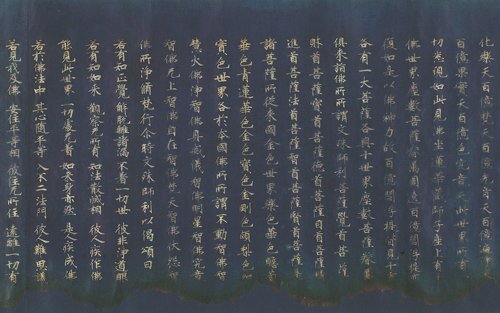 化樂天百億他化樂天百億梵天百億光音天百億遍淨天
百億果實天百億色究竟天此世界所有一
切悉現如此見佛坐蓮華藏師子座上有十
佛世界塵數菩薩眷屬圍遶百億閻浮提亦
復如是以佛神力故百億閻浮提皆見十方
各有一大菩薩各與十世界塵數菩薩眷屬
俱來詣佛所所謂文殊師利菩薩覺首菩薩
財首菩薩寶首菩薩德首菩薩目首菩薩
進首菩薩法首菩薩智首菩薩賢首菩薩是
諸菩薩所從來國金色世界樂色華色瞻蔔
華色青蓮華色金色寶色金剛色頗梨色如
實色世界各於本國佛所所謂不動智佛智
慧火佛淨智佛具威儀智佛明星智佛究竟
智佛無上智佛自在智佛梵天智佛伏怨智
佛所淨脩梵行尒時文殊師利以偈頌曰
若有知正覺 解脫離諸漏 不著一切世 彼非淨道眼
若有知如來 觀察無所有 知法散滅相 彼人疾作佛
能見此世界 一切處無著 如來身亦然 是人疾成佛
若於佛法中 其心隨平等 入不二法門 彼人難思議
若見我及佛 安住平等相 彼住無所住 遠離一切有